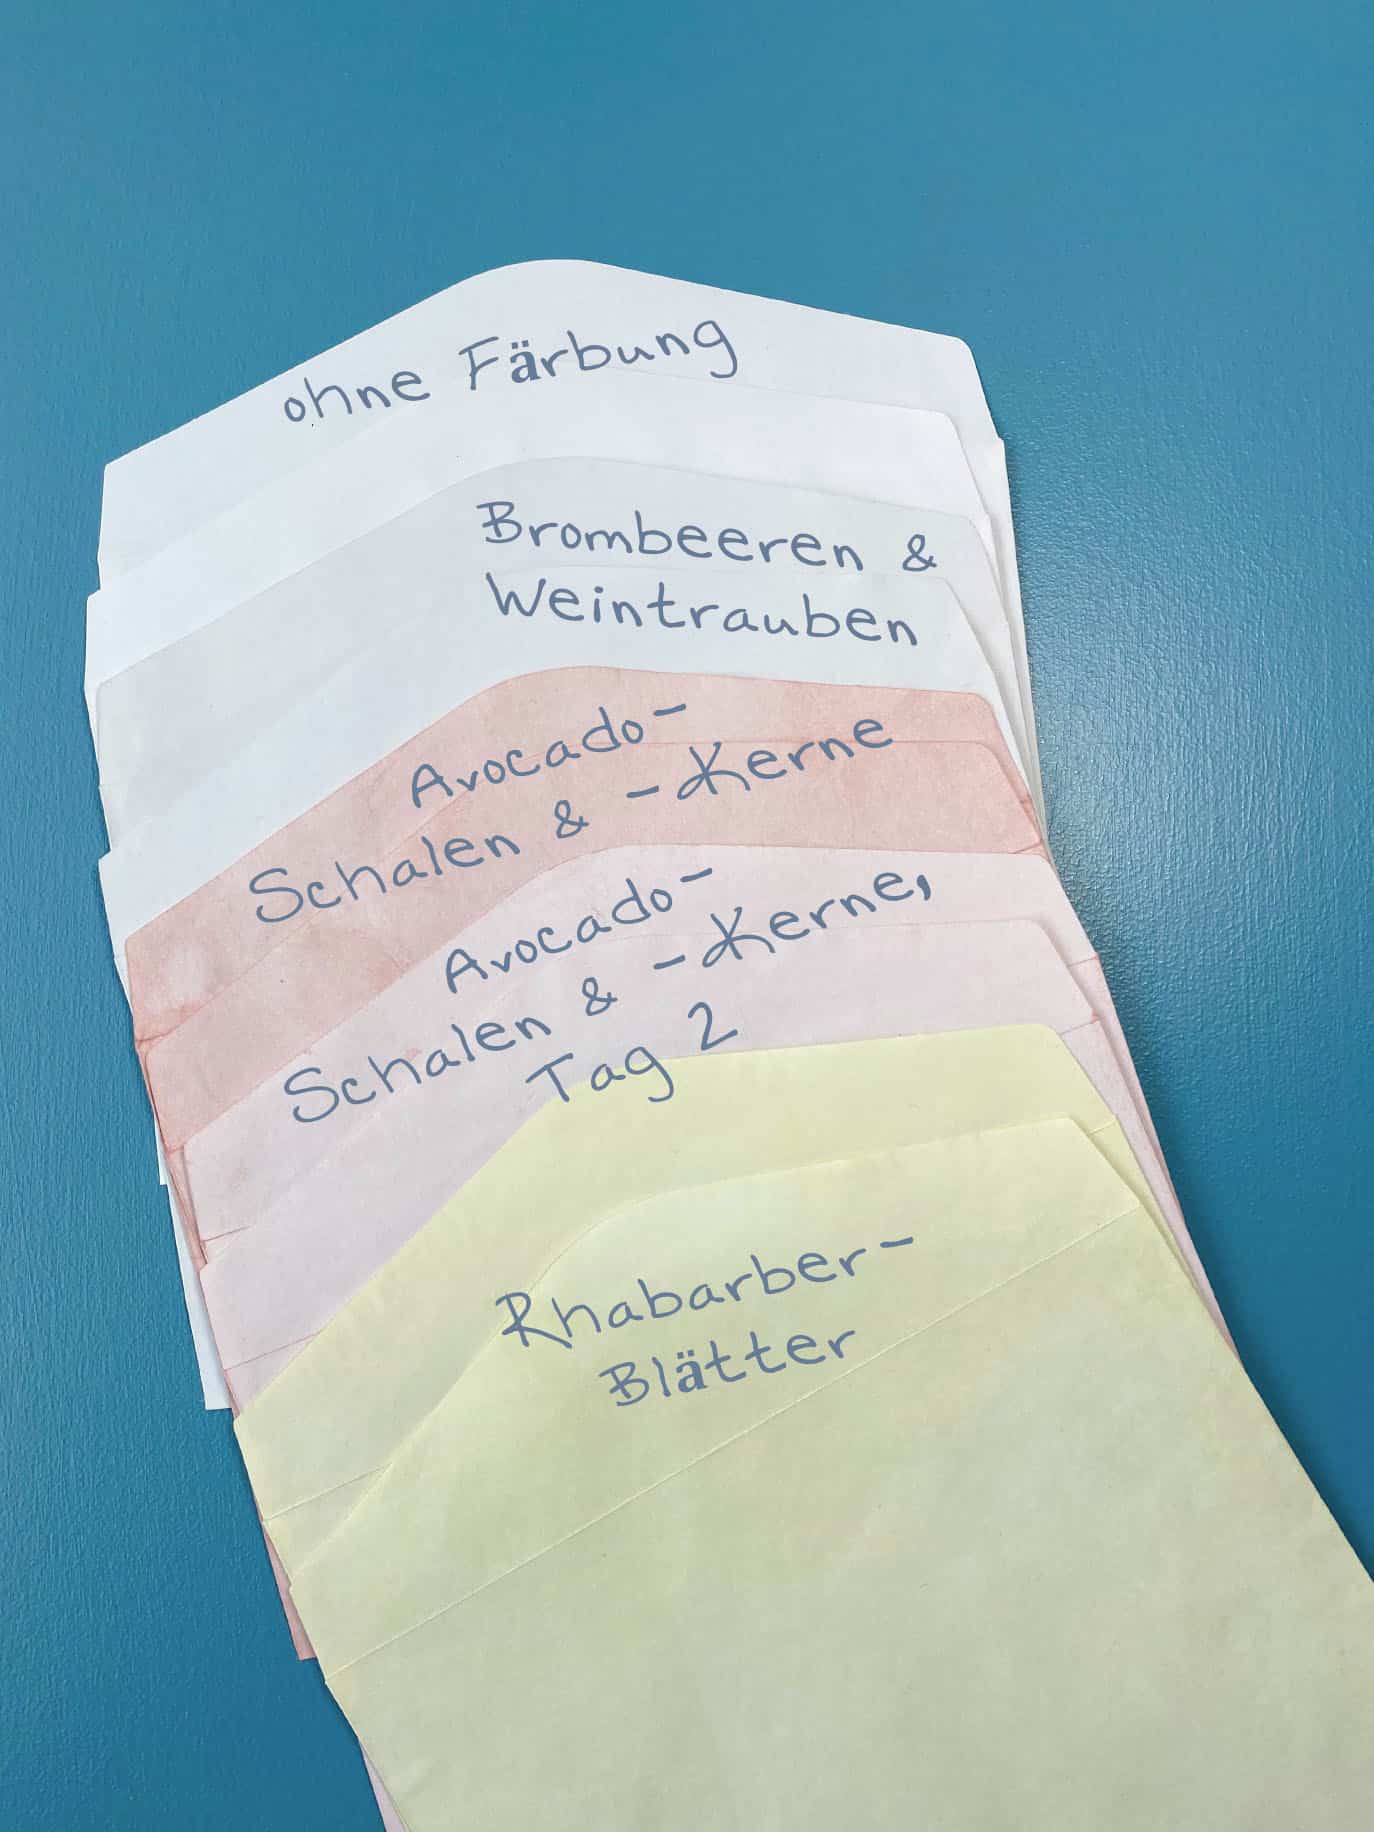 ohne Färbung
Brombeeren &
Weintrauben
Avocado-
Schalen & -Kerne
Avocado-
Schalen & -Kerne,
Tag 2
Rhabarber-
Blätter